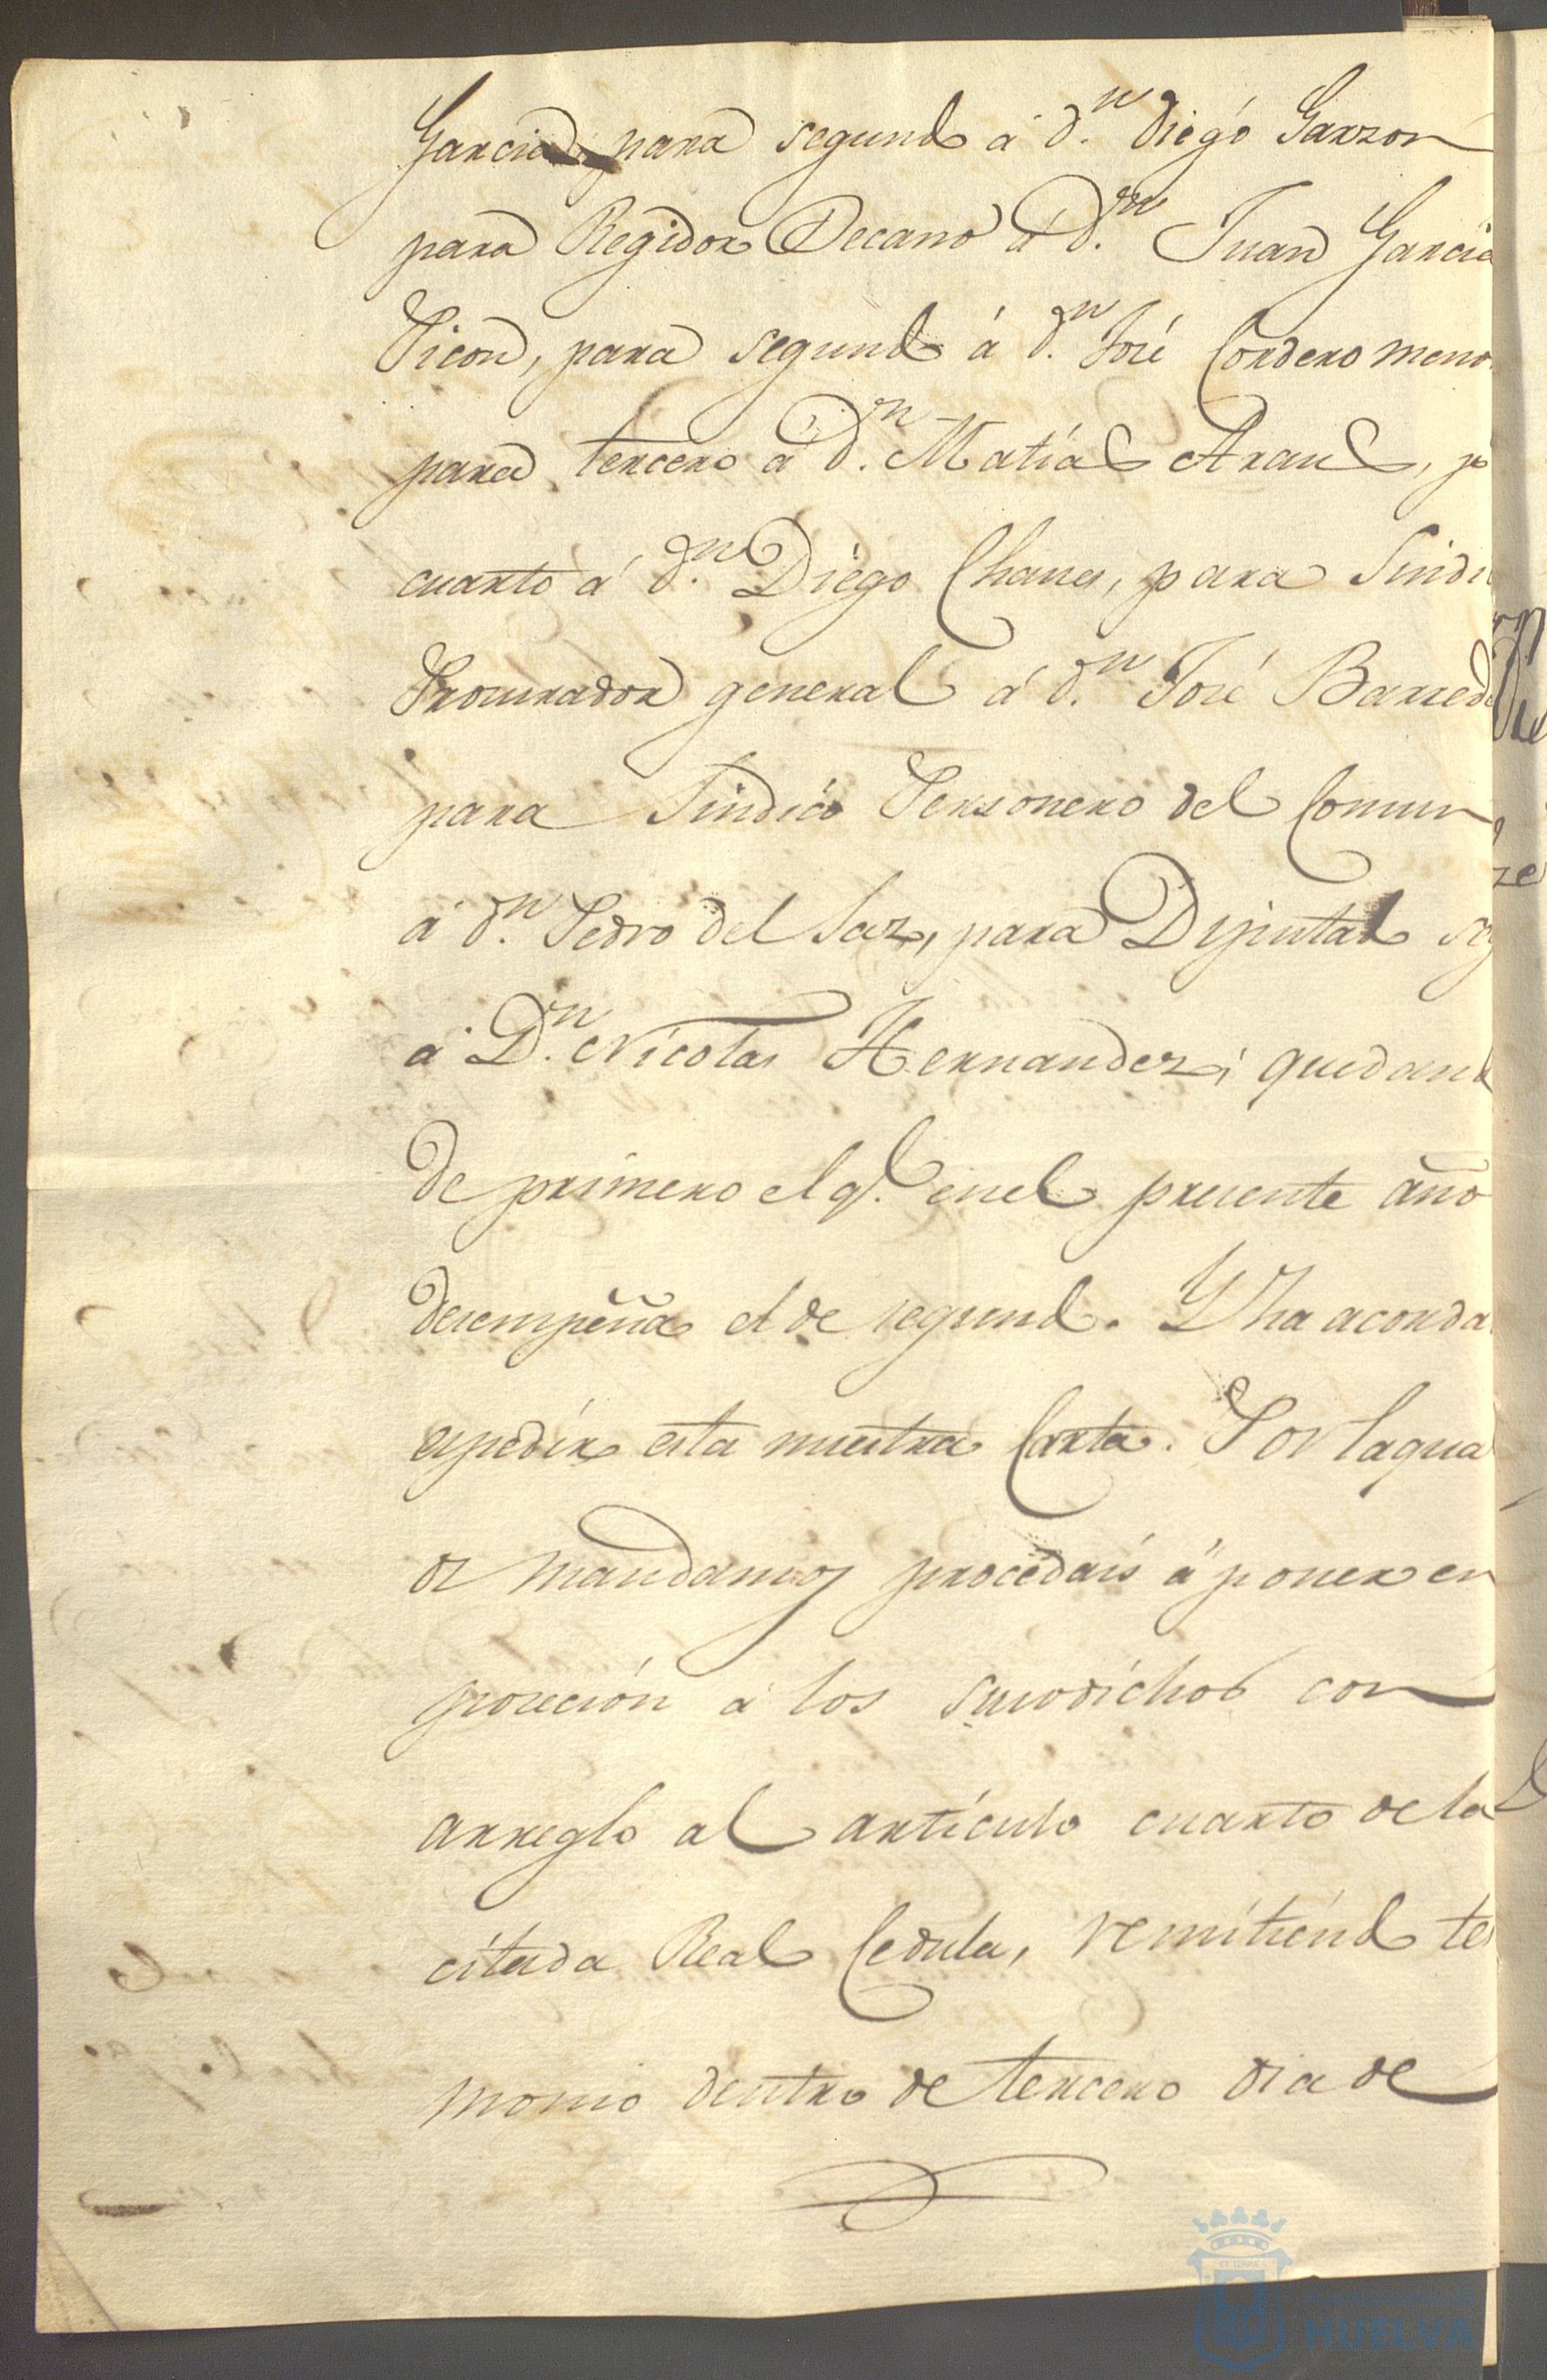 Garcia, para segundo á d.n Diego Garzon
para Regidor Decano á d.n Juan Garcia
Picon, para segundo á d.n José Cordero meno
para tercero á d.n Matías Araus, p.a
cuarto á d.n Diego Chanes, para Sindi
Procurador general á d.n José Barreda
para Sindico Personero del Comun
á d.n Pedro del Saz, para Diputado seg
á D.n Nicolas Hernandez; quedand
de primero el q.e en el presente año
desempeña el de segundo. Y ha acorda
espedir esta nuestra Carta. Por la qua
os mandamos procedais á poner en
posecion á los susodichos con
arreglo al artículo cuarto de la
citada Real Cedula, remitiendo tes
monio dentro de tercero dia de
HUELVA